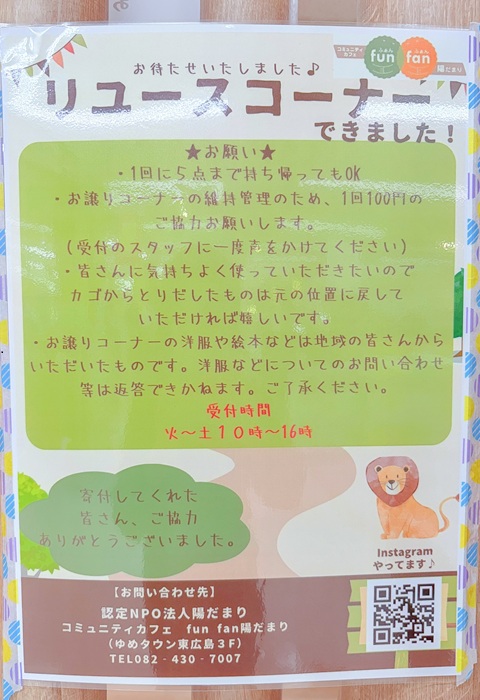 コミュニティ
カフェ
ふぁん
fun
ふぁん
fan
陽だまり
お待たせいたしました♪
リユースコーナー
できました！
★お願い★
・1回に5点まで持ち帰ってもOK
・お譲りコーナーの維持管理のため、1回100円の
ご協力お願いします。
（受付のスタッフに一度声をかけてください）
・皆さんに気持ちよく使っていただきたいので
カゴからとりだしたものは元の位置に戻して
いただければ嬉しいです。
・お譲りコーナーの洋服や絵本などは地域の皆さんから
いただいたものです。洋服などについてのお問い合わせ
等は返答できかねます。ご了承ください。
受付時間
火～土１０時～16時
寄付してくれた
皆さん、ご協力
ありがとうございました。
Instagram
やってます♪
【お問い合わせ先】
認定NPO法人陽だまり
コミュニティカフェ fun fan陽だまり
（ゆめタウン東広島３F）
TEL082‐430‐7007